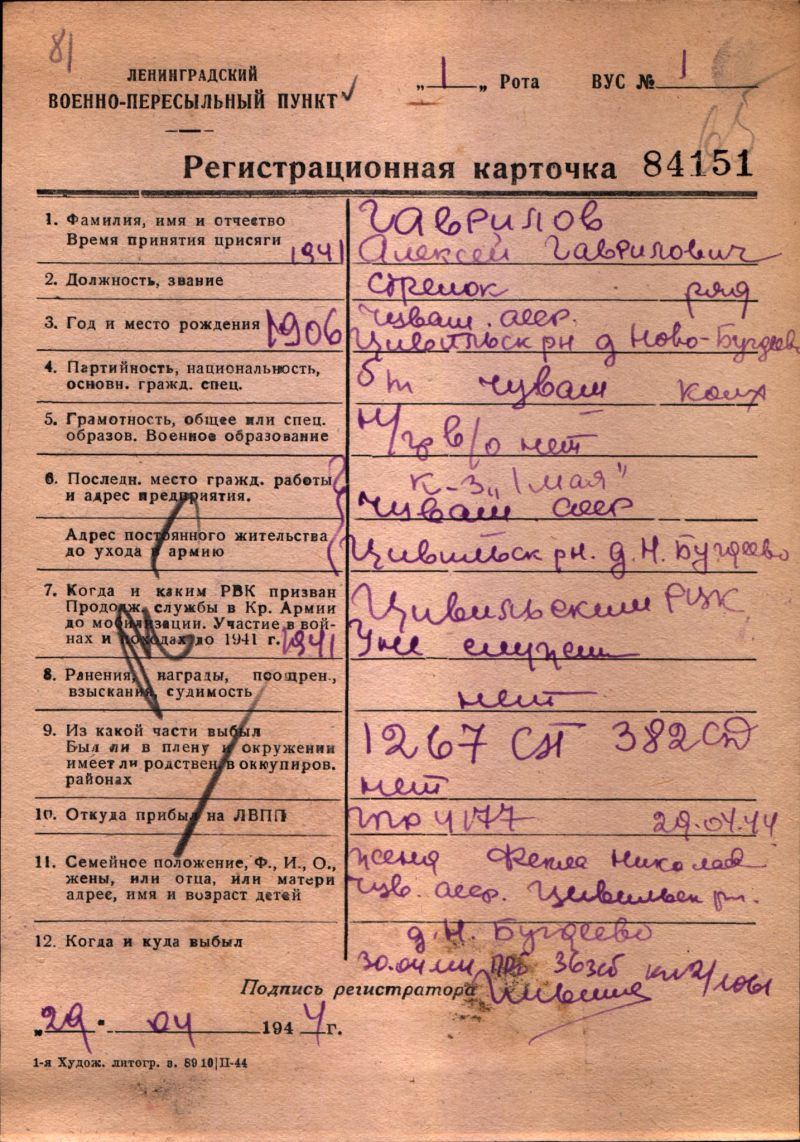 81
ЛЕНИНГРАДСКИЙ
ВОЕННО-ПЕРЕСЫЛЬНЫЙ ПУНКТ
„1„ Рота ВУС № 1
65
Регистрационная карточка 84151
1. Фамилия, имя и отчество
Время принятия присяги 1941
Гаврилов
Алексей Гаврилович
2. Должность, звание
стрелок ряд
3. Год и место рождения 1906
Чуваш. асср.
Цивильск рн д Ново-Бугдеево
4. Партийность, национальность,
основн. гражд. спец.
б/п чуваш колх
5. Грамотность, общее или спец.
образов. Военное образование
н/гр в/о нет
6. Последн. место гражд. работы
и адрес предприятия.
к-з „1 мая"
Чуваш асср
Адрес постоянного жительства
до ухода в армию
Цивильск рн. д. Н. Бугдеево
7. Когда и каким РВК призван
Продолж. службы в Кр. Армии
до мобилизации. Участие в вой-
нах и походах до 1941 г. 1941
Цивильским РВК
не служил
8. Ранения, награды, поощрен.,
взыскания, судимость
нет
9. Из какой части выбыл
Был ли в плену и окружении
имеет ли родствен. в оккупиров.
районах
1267 СП 382 СД
нет
10. Откуда прибыл на ЛВПП
4177 29.04.44
11. Семейное положение, Ф., И., О.,
жены, или отца, или матери
адрес, имя и возраст детей
жена Фекла Николае
Чув. асср. Цивильск рн.
д. Н. Бугдеево
12. Когда и куда выбыл
30.04 36 зсб
Подпись регистратора
„29" 04 1944 г.
1-я Худож. литогр. з. 8910|П-44